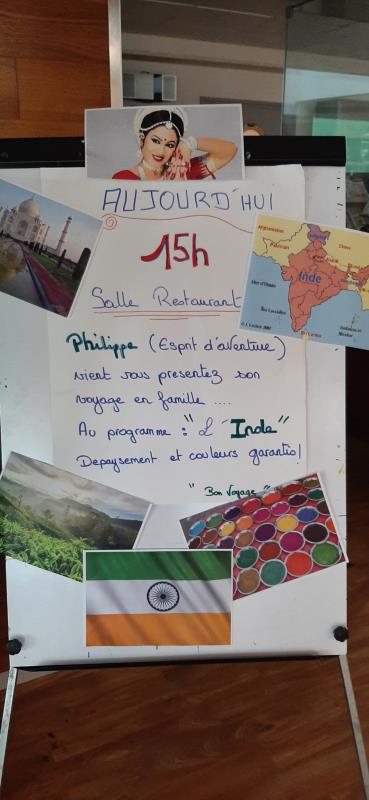 AUJOURD'HUI
15h
Salle Restaurant
Philippe (Esprit d'aventure)
vient vous presentez son
voyage en famille ....
Au programme : "L'Inde"
Depaysement et couleurs garantis!
"Bon Voyage"
Afghanistan
Pakistan
Chine
Inde
Mer d'Oman
Iles Laccadives
Sri Lanka